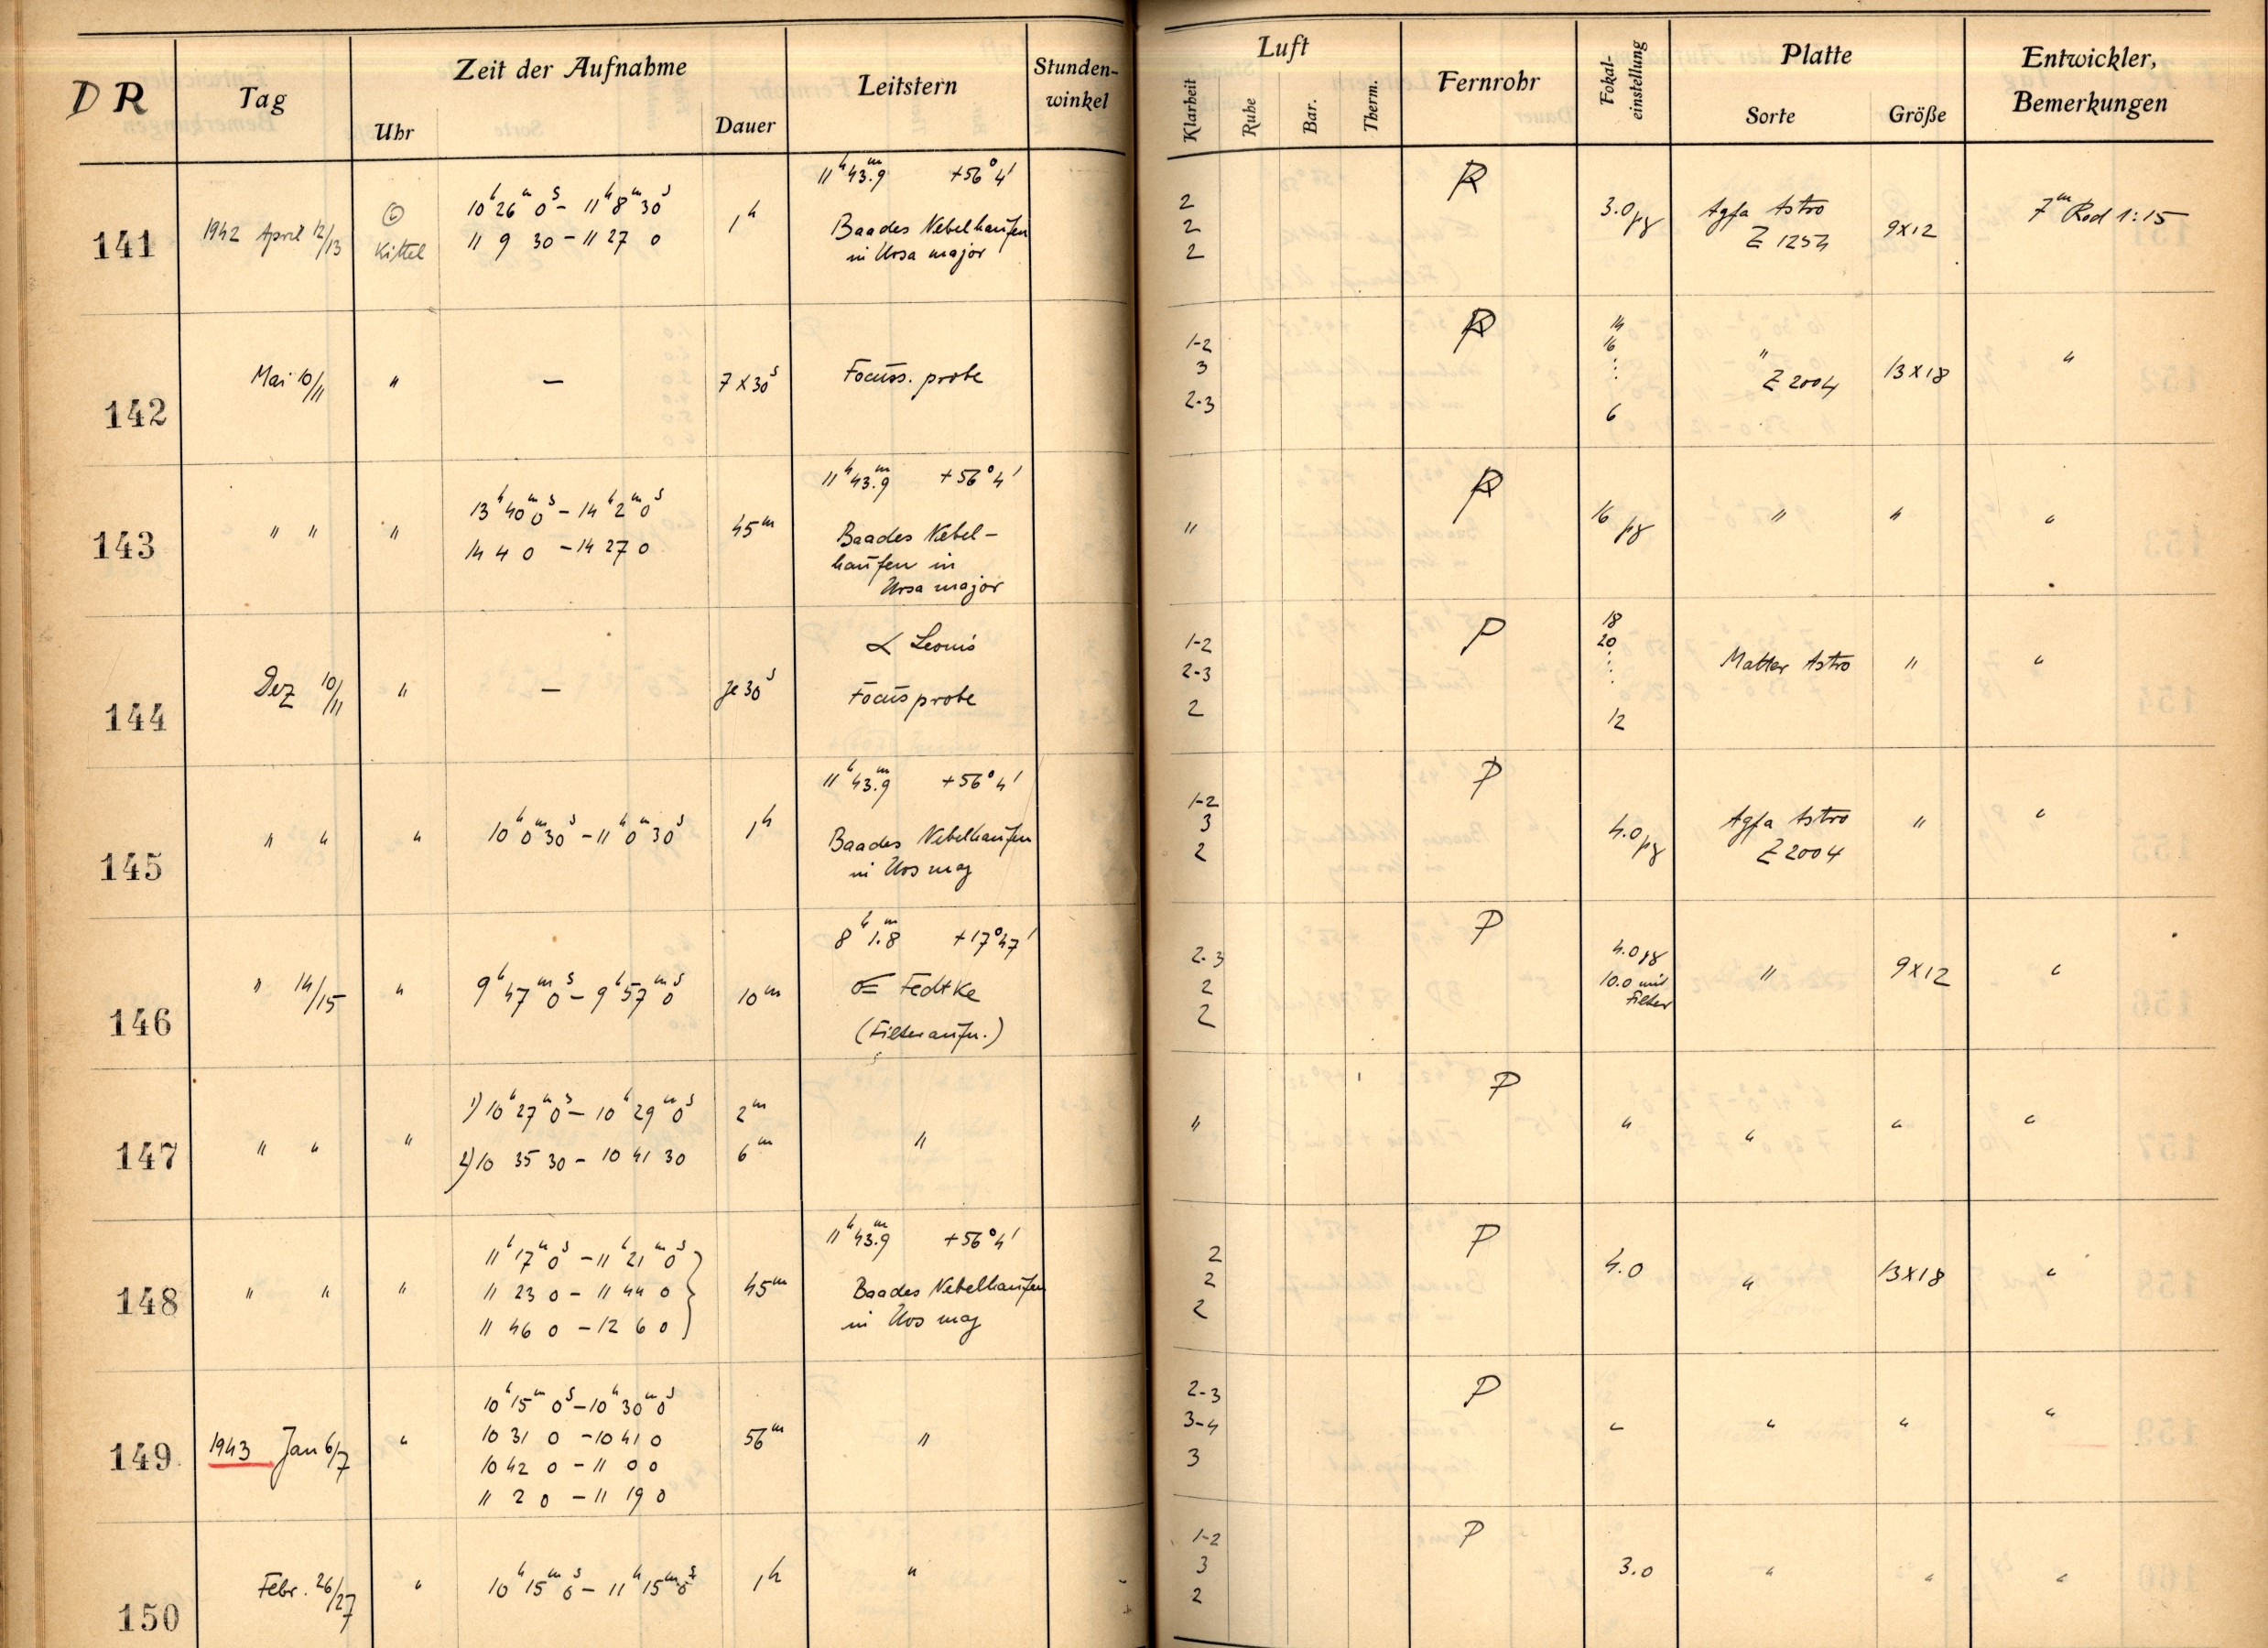 DR
Tag
Zeit der Aufnahme
Uhr
Dauer
Leitstern
Stunden-
winkel
Luft
Klarheit
Ruhe
Bar.
Therm.
Fernrohr
Fokal-
einstellung
Platte
Sorte
Größe
Entwickler,
Bemerkungen
141
1942 April 12/13
Kittel
10h 26m 0s – 11h 8m 30s
11 9 30 – 11 27 0
1h
11h 43.9m +56° 4'
Baades Nebelhaufen
in Ursa major
2
2
2
3.0 pg
Agfa Astro
Z 1254
9x12
7m Rod 1:15
142
Mai 10/11
"
–
7 x 30s
Focuss. probe
1-2
3
2-3
14
16
⋮
6
"
Z 2004
13x18
"
143
" "
"
13h 40m 0s – 14h 2m 0s
14 4 0 – 14 27 0
45m
11h 43.9m +56° 4'
Baades Nebel-
haufen in
Ursa major
"
16 pg
"
"
"
144
Dez 10/11
"
–
je 30s
α Leonis
Focusprobe
1-2
2-3
2
P
18
20
⋮
12
Matter Astro
"
"
145
" "
"
10h 0m 30s – 11h 0m 30s
1h
11h 43.9m +56° 4'
Baades Nebelhaufen
in Urs maj
1-2
3
2
P
4.0 pg
Agfa Astro
Z 2004
"
"
146
" 14/15
"
9h 47m 0s – 9h 57m 0s
10m
8h 1.8m +17° 47'
Fedtke
(Filteraufn.)
2-3
2
2
P
4.0 pg
10.0 mit
Filter
"
9x12
"
147
" "
"
1) 10h 27m 0s – 10h 29m 0s
2) 10 35 30 – 10 41 30
2m
6m
"
"
P
"
"
"
"
148
" "
"
11h 17m 0s – 11h 21m 0s
11 23 0 – 11 44 0
11 46 0 – 12 6 0
45m
11h 43.9m +56° 4'
Baades Nebelhaufen
in Urs maj
2
2
2
P
4.0
"
13x18
"
149
1943 Jan 6/7
"
10h 15m 0s – 10h 30m 0s
10 31 0 – 10 41 0
10 42 0 – 11 0 0
11 2 0 – 11 19 0
56m
"
2-3
3-4
3
P
"
"
"
"
150
Febr. 26/27
"
10h 15m 0s – 11h 15m 0s
1h
"
1-2
3
2
P
3.0
"
"
"